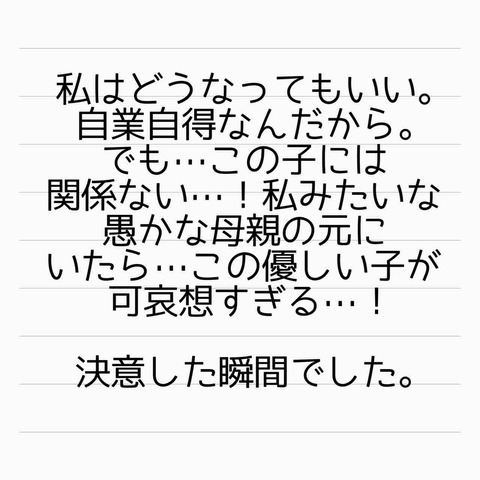 私はどうなってもいい。
自業自得なんだから。
でも…この子には
関係ない…！私みたいな
愚かな母親の元に
いたら…この優しい子が
可哀想すぎる…！
決意した瞬間でした。